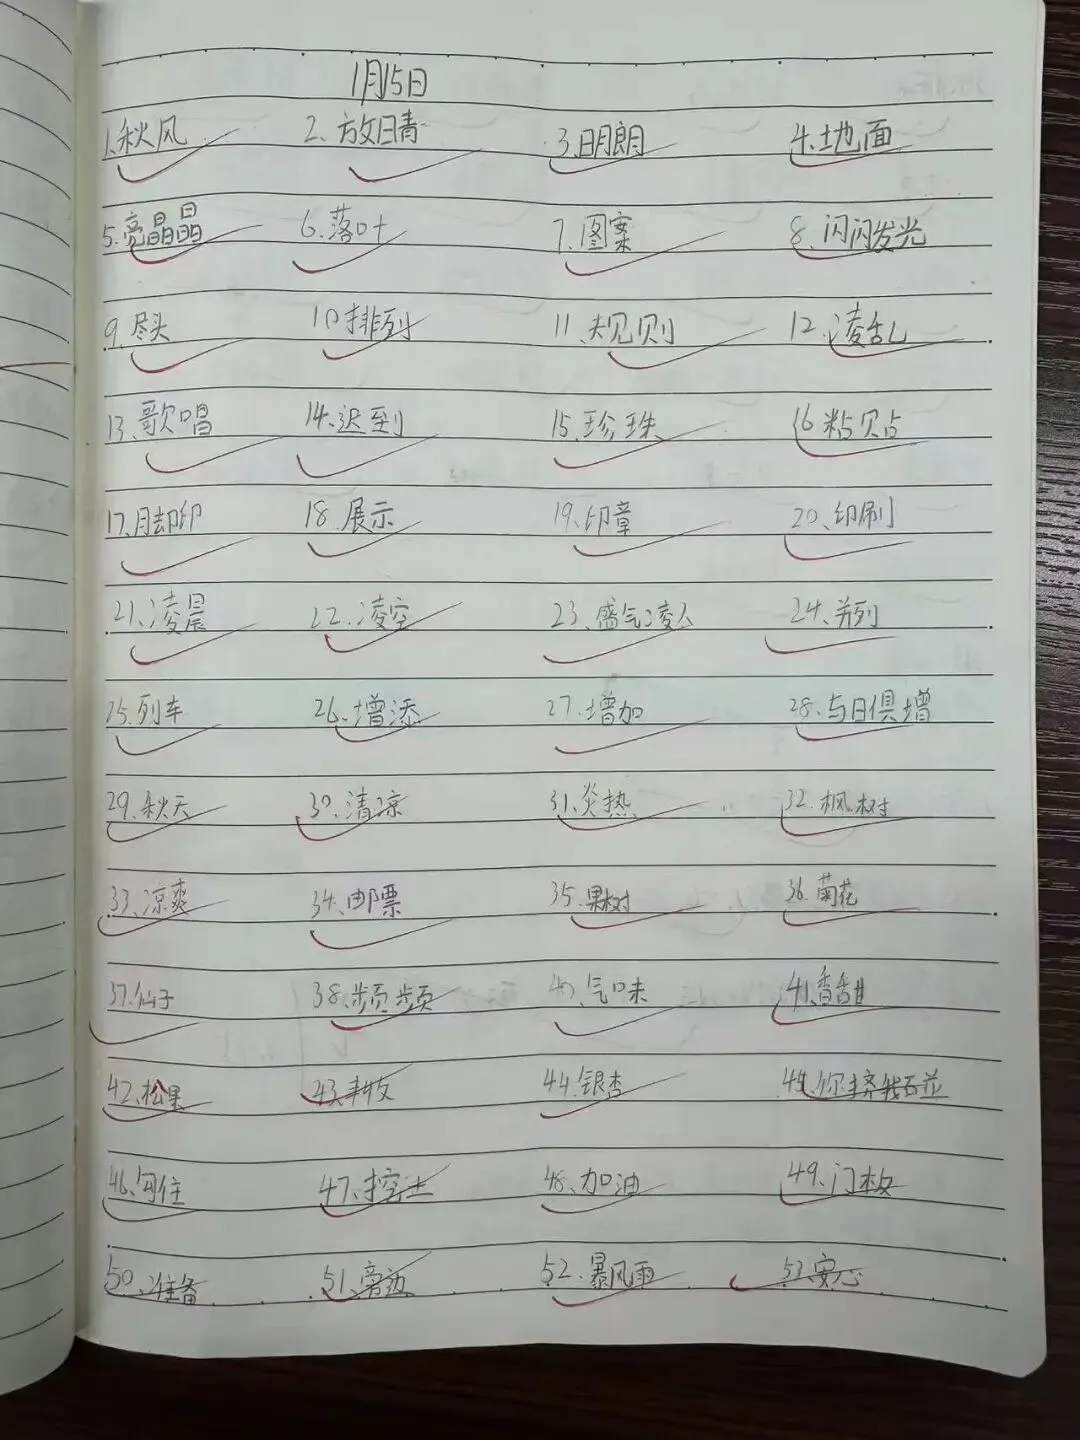 1月15日
1.秋风 2.放晴 3.明朗 4.地面
5.亮晶晶 6.落叶 7.图案 8.闪闪发光
9.尽头 10排列 11.规则 12.凌乱
13.歌唱 14.迟到 15.珍珠 16粘贴
17.脚印 18.展示 19.印章 20.印刷
21.凌晨 22.凌空 23.盛气凌人 24.并列
25.列车 26.增添 27.增加 28.与日俱增
29.秋天 30.清凉 31.炎热 32.枫树
33.凉爽 34.邮票 35.果树 36.菊花
37.仙子 38.频频 40.气味 41.香甜
42.松果 43.丰收 44.银杏 45.你挤我碰
46.勾住 47.挖土 48.加油 49.门枚
50.准备 51.旁边 52.暴风雨 53.安心